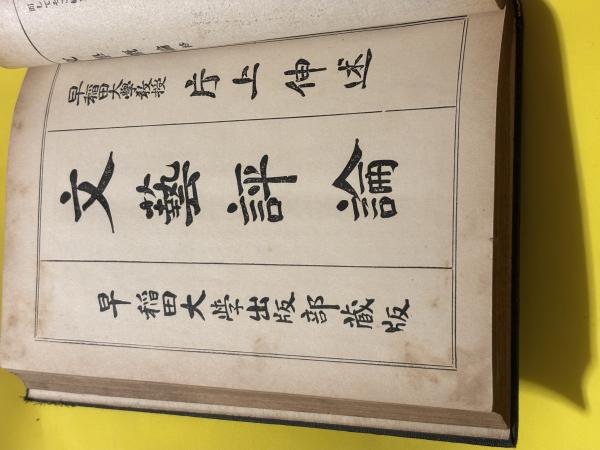 早稲田大学教授 片上伸述
文藝評論
早稲田大学出版部蔵版